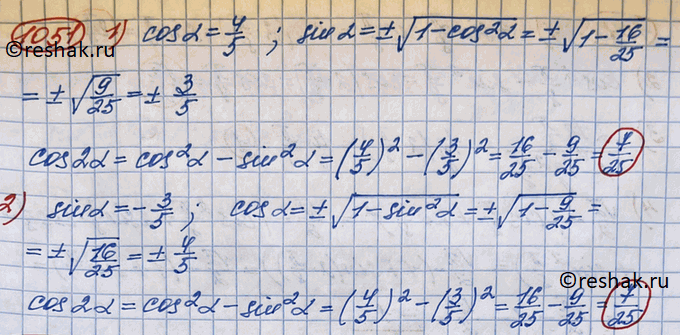 1051 1) cosα = 4/5 ; sinα = ±√(1-cos²α) = ±√(1-16/25) =
= ±√(9/25) = ± 3/5
cos2α = cos²α - sin²α = (4/5)² - (3/5)² = 16/25 - 9/25 = 7/25
2) sinα = -3/5 ; cosα = ±√(1-sin²α) = ±√(1-9/25) =
= ±√(16/25) = ± 4/5
cos2α = cos²α - sin²α = (4/5)² - (3/5)² = 16/25 - 9/25 = 7/25
©Reshak.ru